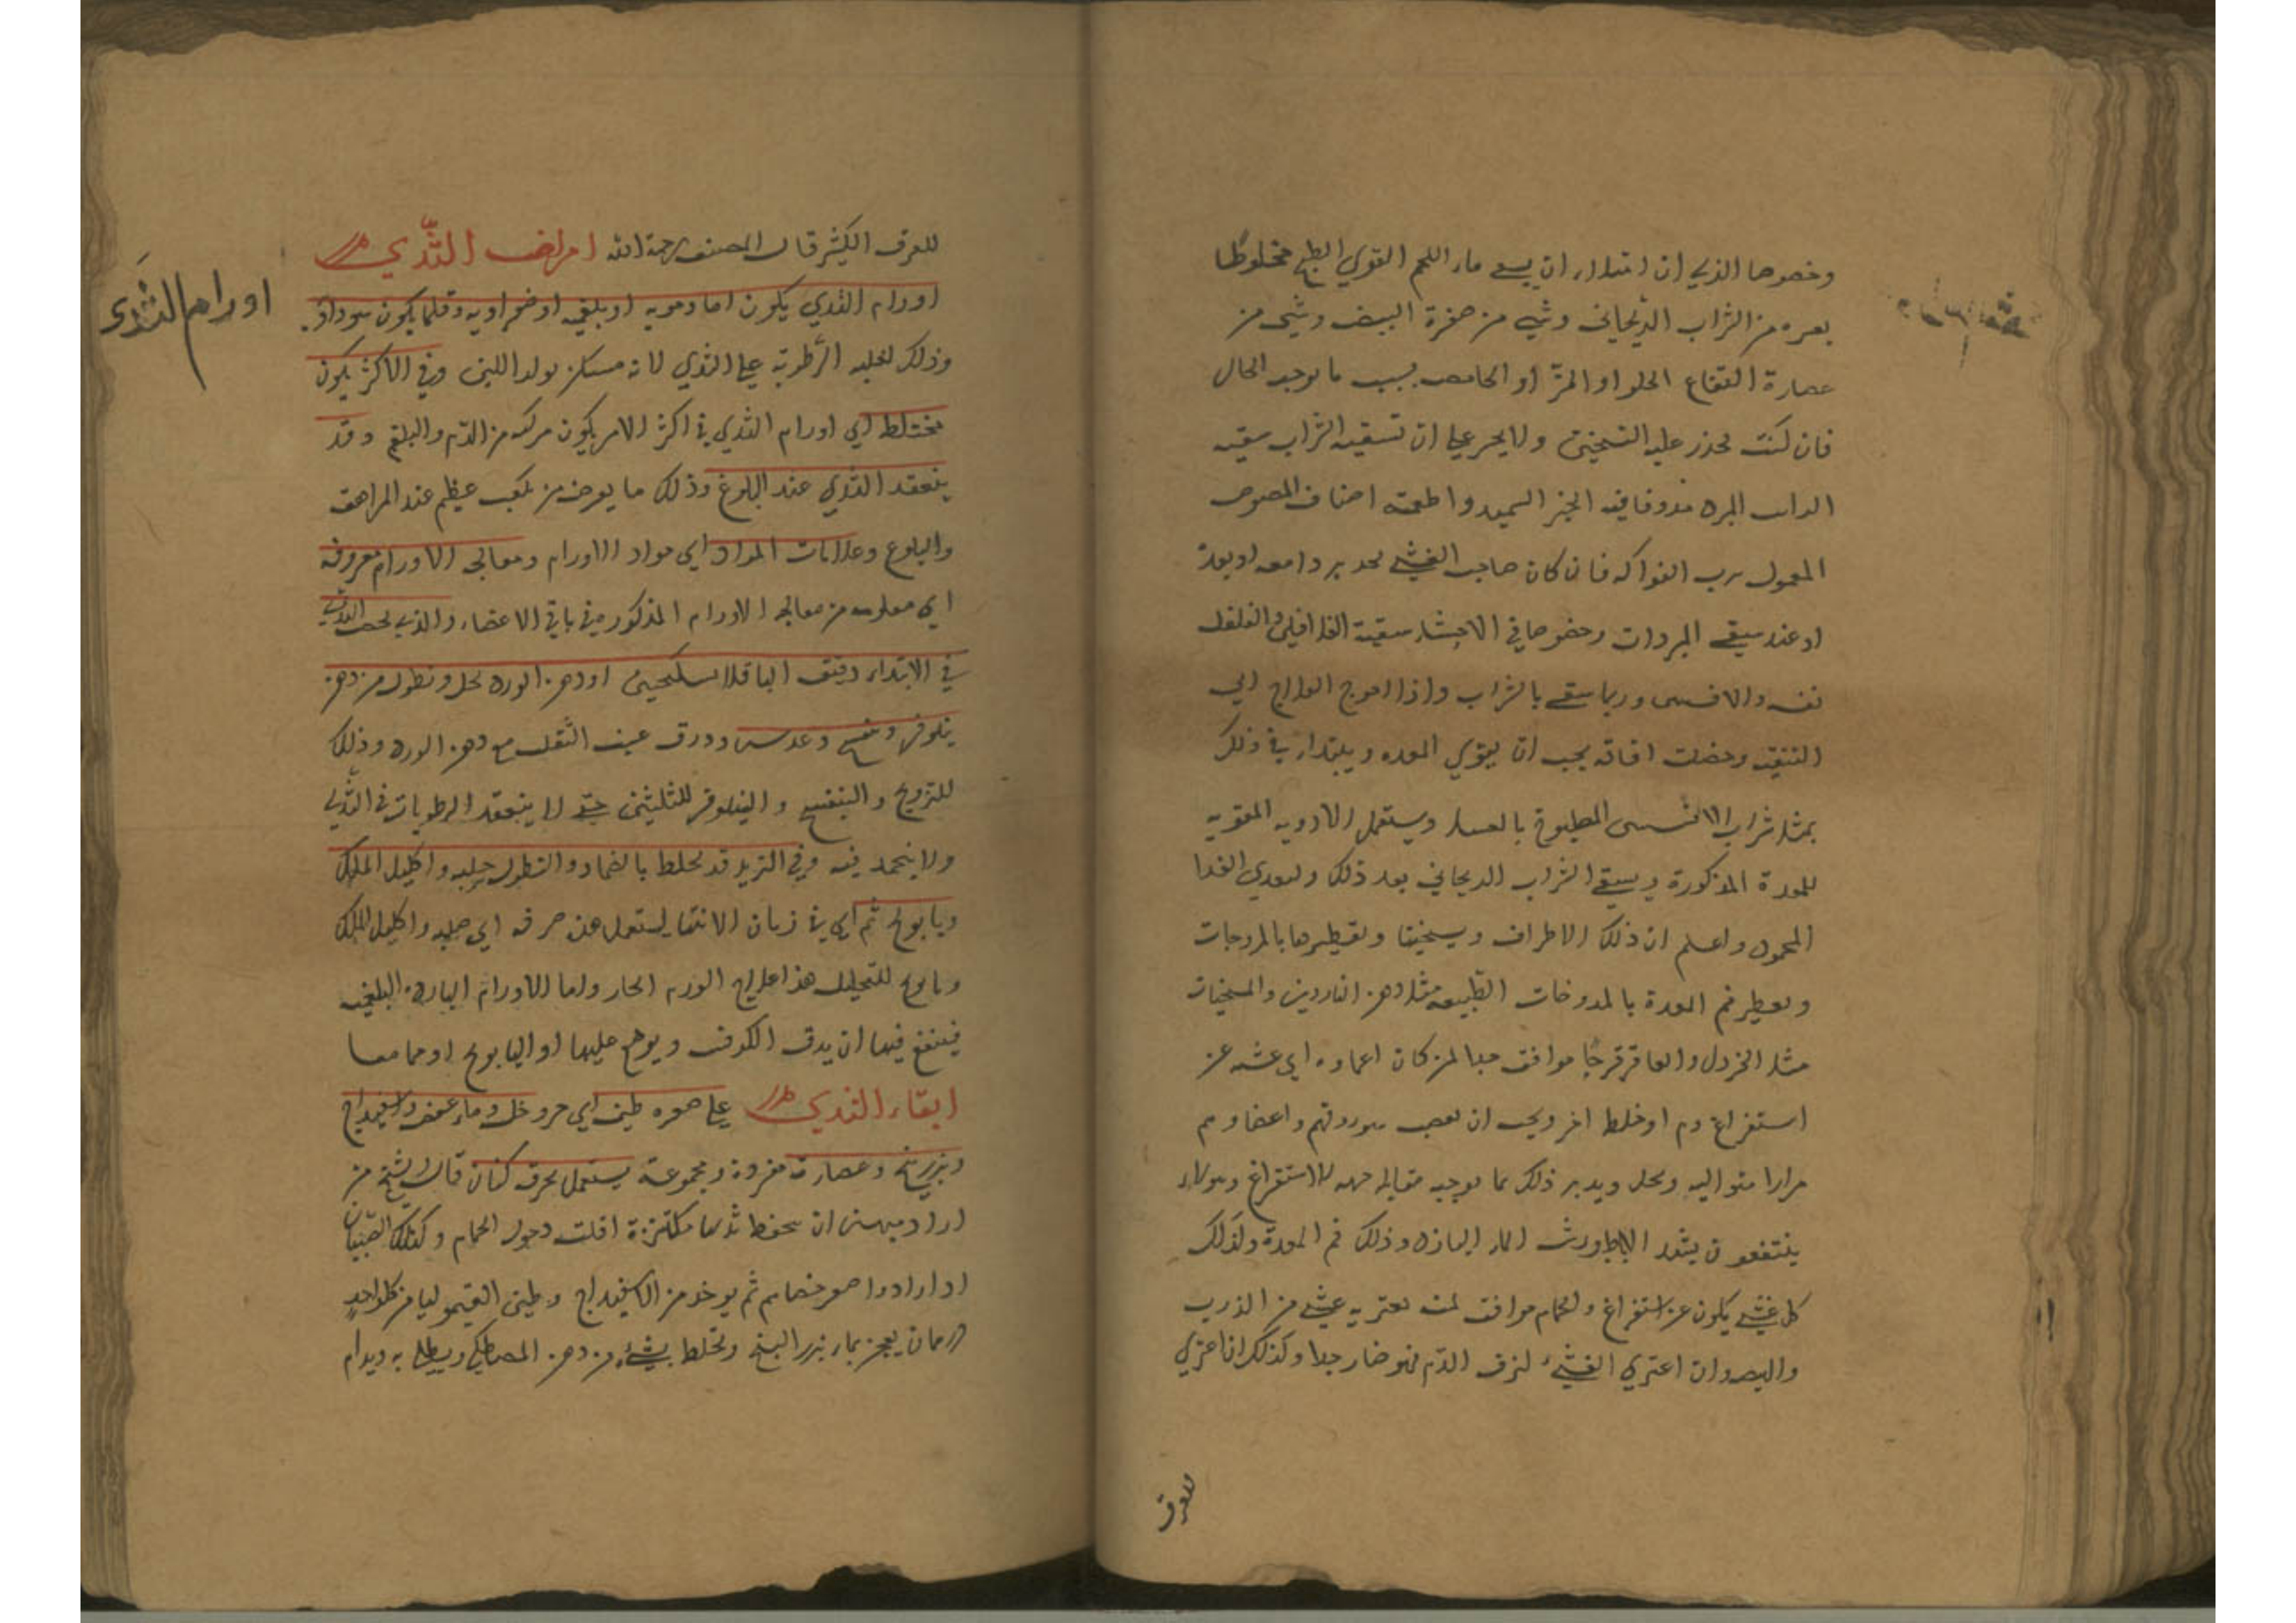 وخصوصا الذي ان ابتدا، ان يسقى ماء اللحم القوي الطبخ مخلوطا
بعده من الشراب الريحاني وشي من صفرة البيض وشي من
عصارة التفاح الحلو او المز او الحامض بسبب ما يوجبه الحال
فان كنت تحذر عليه التسخين ولا يجسر على ان تسقيه الشراب سقيته
الرائب المبرد مدوفا فيه الخبز السميد واطعمته اصناف المصوص
المعمول برب الفواكه فان كان صاحب الغشي يجد بردا معه او بعده
او عند سقي المبردات وخصوصا في الاحشاء سقيته الفلافلي والفلفل
نفسه والافسنتين وربما سقي بالشراب واذا احوج العلاج الى
التنقية وحصلت افاقة يجب ان يقوي المعده ويبتدا، في ذلك
بمثل شراب الافسنتين المطبوخ بالعسل ويستعمل الادويه المقويه
للمعدة المذكورة ويسقى الشراب الريحاني بعد ذلك ويغذى الغذا
المحمود واعلم ان ذلك الاطراف وتسخينها وتعطيرها بالمروخات
وتعطير فم المعدة بالمروخات الطيبة مثل دهن الناردين والمسخنات
مثل الخردل والعاقرقرحا موافق جدا لمن كان اغماوه اي غشيه عن
استفراغ دم او خلط اخر ويجب ان تعصب سوقهم واعضاوهم
مرارا متواليه ويحل ويدبر ذلك بما يوجبه مقابله جهه الاستفراغ وهولاء
ينتفعون بشد الاباط ورش الماء البارد وذلك فم المعدة وكذلك
كل غشي يكون عن استفراغ والحمام موافق لمن يعتريه غشي من الذرب
والهيضه وان اعتري الغشي لنزف الدم فهو ضار جدا وكذلك ان اعتري
للعرق
للعرق الكثير قال المصنف رحمه الله امراض الثدي
اورام الثدي
اورام الثدي يكون اما دمويه او بلغميه او صفراويه وقلما يكون سوداويه
وذلك لغلبه الرطوبة على الثدي لانه مسكن تولد اللبن وفي الاكثر يكون
مختلط اي اورام الثدي في اكثر الامر يكون مركبه من الدم والبلغم وقد
ينعقد الثدي عند البلوغ وذلك ما يعرض من تكعب عظيم عند المراهقه
والبلوغ وعلامات المواد اي مواد الاورام ومعالجه الاورام معروفه
اي معلومه من معالجه الاورام المذكوره في باقي الاعضاء والذي يخص الثدي
في الابتداء دقيق الباقلا بسكنجبين او دهن الورد بخل ونطول من دهن
نيلوفر وبنفسج وعدس وورق عنب الثعلب مع دهن الورد وذلك
للترويح والبنفسج والنيلوفر للتليين حتى لا ينعقد الرطوبات في الثدي
ولا ينجمد فيه وفي التزيد قد يخلط بالضماد والنطول حلبه واكليل الملك
وبابونج ثم اي في زمان الانتها يستعمل هذه صرفه اي حلبه واكليل الملك
وبابونج للتحليل هذا علاج الورم الحار واما الاورام البارده البلغميه
فينفع فيها ان يدق الكرفس ويوضع عليها او البابونج او هما معا
ابقاء الثدي على صغره طين اي حر وخل وماء عفص واسفيداج
وبزر بنج وعصارته مفردة ومجموعة يستعمل بخرقه كتان قال الشيخ من
اراد منهن ان يحفظ ثديها مكتنزة اقلت دخول الحمام وكذلك الصبيان
اذا ارادوا صغر خصاهم ثم يوخذ من الاسفيداج وطين القيموليا من كل واحد
درهمان يعجن بماء بزر البنج ويخلط بشيء من دهن المصطكي ويطلى به ويدام